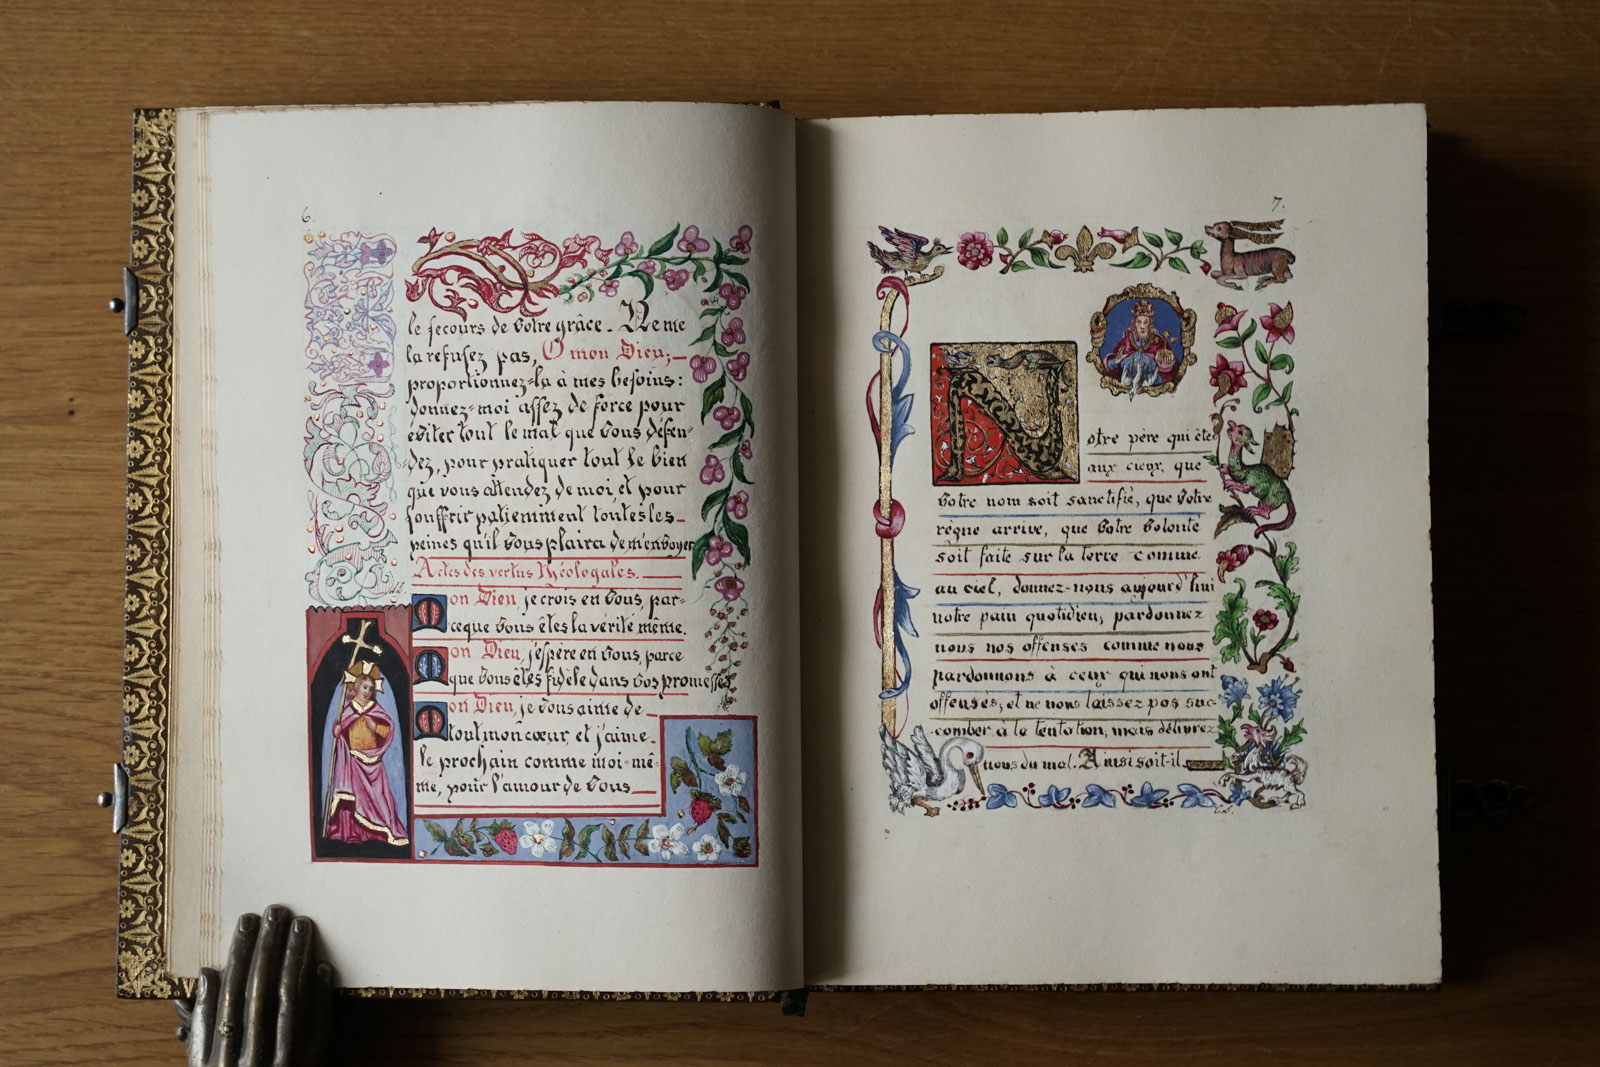 6.
le secours de votre grâce. Ne me
la refusez pas, O mon Dieu;
proportionnez-la à mes besoins:
donnez-moi assez de force pour
éviter tout le mal que vous défen-
dez, pour pratiquer tout le bien
que vous attendez de moi, et pour
souffrir patiemment toutes les
peines qu'il vous plaira de m'envoyer
Actes des vertus théologales.
Mon Dieu, je crois en vous, par-
ceque vous êtes la vérité même.
Mon Dieu, j'espère en vous, parce
que vous êtes fidèle dans vos promesses
Mon Dieu, je vous aime de
tout mon cœur, et j'aime
le prochain comme moi-mê-
me, pour l'amour de vous
7.
Notre père qui êtes
aux cieux, que
votre nom soit sanctifié, que votre
règne arrive, que votre volonté
soit faite sur la terre comme
au ciel, donnez-nous aujourd'hui
notre pain quotidien, pardonnez
nous nos offenses comme nous
pardonnons à ceux qui nous ont
offensés, et ne nous laissez pas suc-
comber à la tentation, mais délivrez
nous du mal. Ainsi soit-il.